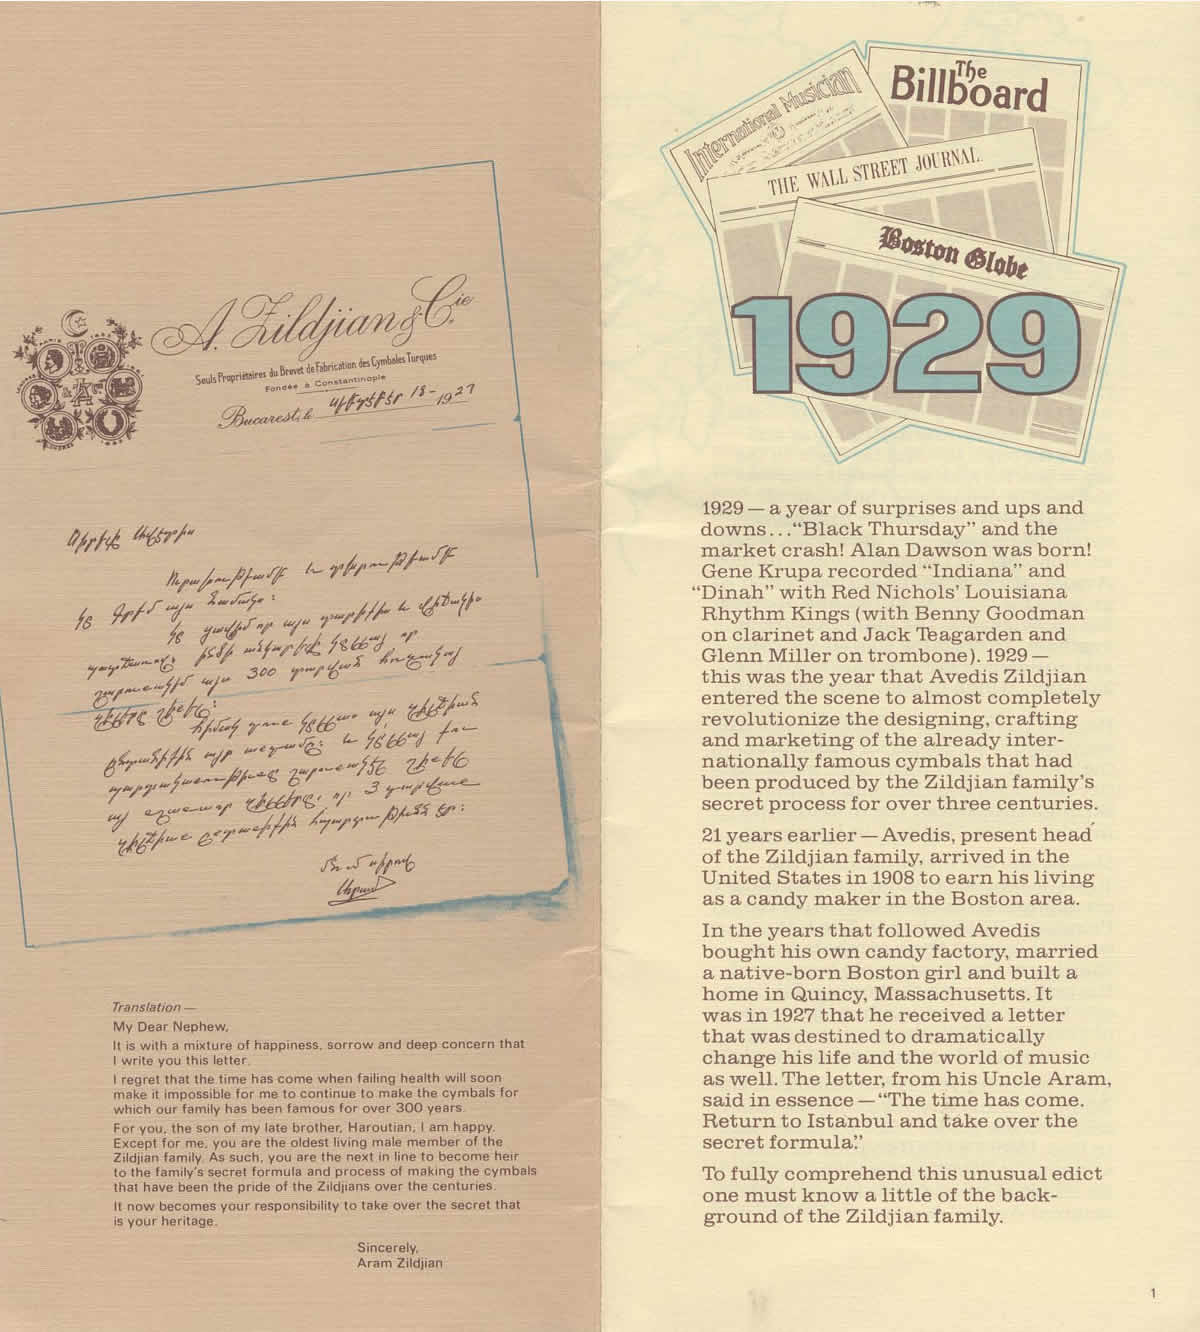 A. Zildjian & Cie.
Seuls Propriétaires du Brevet de Fabrication des Cymbales Turques
Fondée à Constantinople
Bucarest, le 18 - 1927
Սիրելի Աւետիս
Ուրախութեամբ եւ տխրութեամբ
կը գրեմ այս նամակս:
Կը ցաւիմ որ այս տարիքիս եւ
այս 300 տարուան
Translation —
My Dear Nephew,
It is with a mixture of happiness, sorrow and deep concern that
I write you this letter.
I regret that the time has come when failing health will soon
make it impossible for me to continue to make the cymbals for
which our family has been famous for over 300 years.
For you, the son of my late brother, Haroutian, I am happy.
Except for me, you are the oldest living male member of the
Zildjian family. As such, you are the next in line to become heir
to the family's secret formula and process of making the cymbals
that have been the pride of the Zildjians over the centuries.
It now becomes your responsibility to take over the secret that
is your heritage.
Sincerely,
Aram Zildjian
International Musician
The Billboard
THE WALL STREET JOURNAL.
Boston Globe
1929
1929 — a year of surprises and ups and
downs...“Black Thursday” and the
market crash! Alan Dawson was born!
Gene Krupa recorded “Indiana” and
“Dinah” with Red Nichols’ Louisiana
Rhythm Kings (with Benny Goodman
on clarinet and Jack Teagarden and
Glenn Miller on trombone). 1929 —
this was the year that Avedis Zildjian
entered the scene to almost completely
revolutionize the designing, crafting
and marketing of the already inter-
nationally famous cymbals that had
been produced by the Zildjian family’s
secret process for over three centuries.
21 years earlier — Avedis, present head
of the Zildjian family, arrived in the
United States in 1908 to earn his living
as a candy maker in the Boston area.
In the years that followed Avedis
bought his own candy factory, married
a native-born Boston girl and built a
home in Quincy, Massachusetts. It
was in 1927 that he received a letter
that was destined to dramatically
change his life and the world of music
as well. The letter, from his Uncle Aram,
said in essence — “The time has come.
Return to Istanbul and take over the
secret formula.”
To fully comprehend this unusual edict
one must know a little of the back-
ground of the Zildjian family.
1